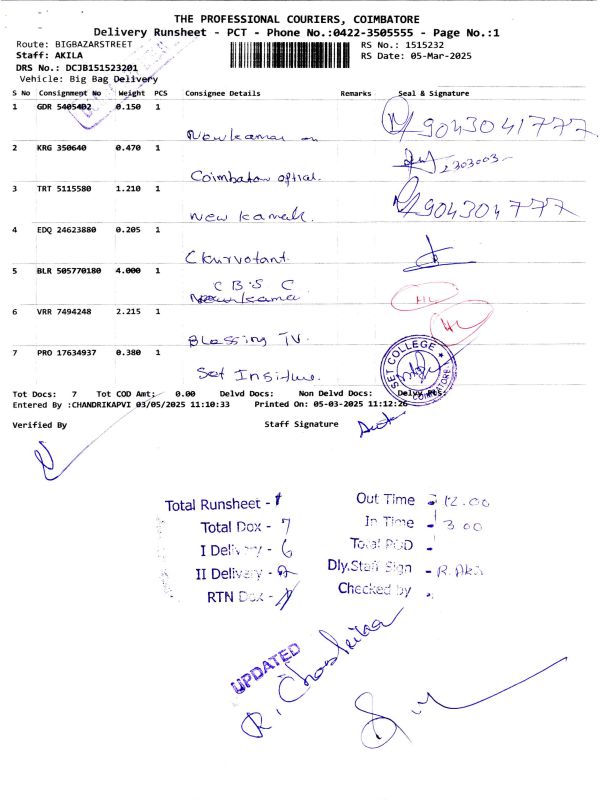 THE PROFESSIONAL COURIERS, COIMBATORE
Delivery Runsheet - PCT - Phone No.:0422-3505555 - Page No.:1
Route: BIGBAZARSTREET RS No.: 1515232
Staff: AKILA RS Date: 05-Mar-2025
DRS No.: DCJB151523201
Vehicle: Big Bag Delivery
S No Consignment No Weight PCS Consignee Details Remarks Seal & Signature
1 GDR 5405402 0.150 1
New kamar 9043041777
2 KRG 350640 0.470 1
Coimbatow optial. 2303003
3 TRT 5115580 1.210 1
New kamak. 904304777
4 EDQ 24623880 0.205 1
5 BLR 505770180 4.000 1
C B S C
6 VRR 7494248 2.215 1
Blessing TV.
7 PRO 17634937 0.380 1
Set SET COLLEGE COIMBATORE
Tot Docs: 7 Tot COD Amt: 0.00 Delvd Docs: Non Delvd Docs: Delvy Pct:
Entered By :CHANDRIKAPVI 03/05/2025 11:10:33 Printed On: 05-03-2025 11:12:26
Verified By Staff Signature
Total Runsheet - 1 Out Time - 12.00
Total Dox - 7 In Time - 3 00
I Delivery - 6 Total POD -
II Delivery - Dly.Staff Sign -
RTN Dox - Checked by -
UPDATED